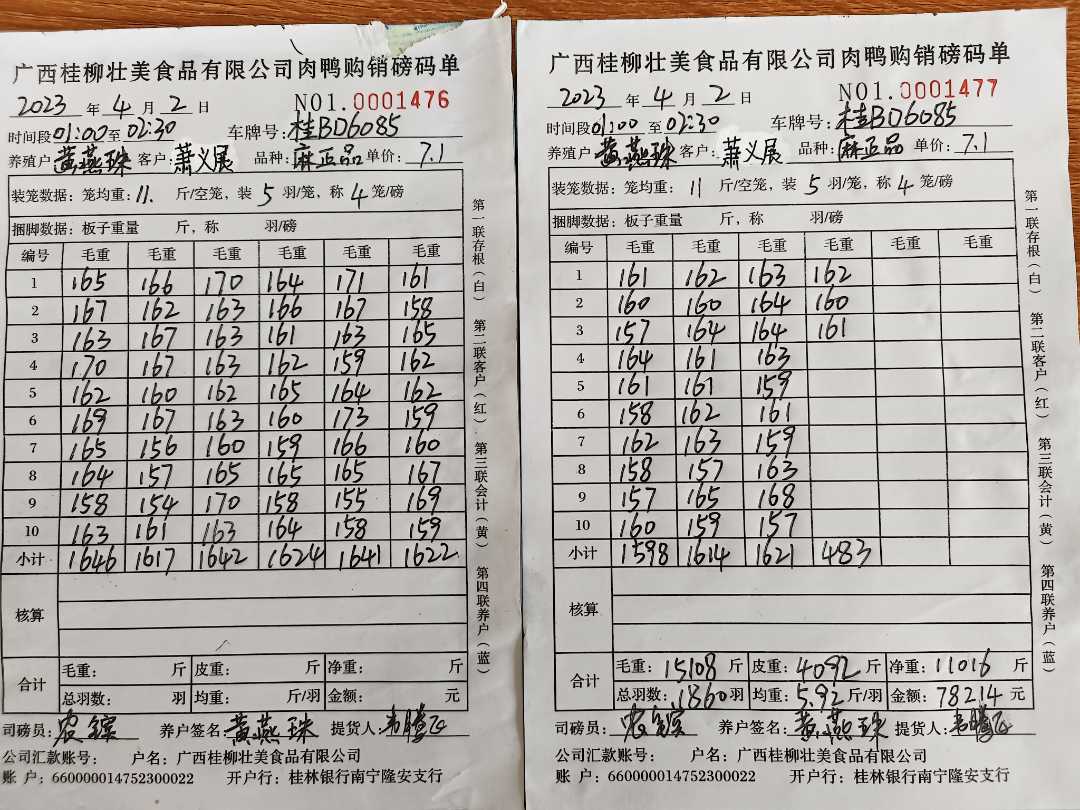 广西桂柳壮美食品有限公司肉鸭购销磅码单
2023 年 4 月 2 日 NO1.0001476
时间段 01:00 至 02:30 车牌号: 桂BD6085
养殖户 黄燕珠 客户: 萧义展 品种: 麻正品 单价: 7.1
装笼数据: 笼均重: 11. 斤/空笼, 装 5 羽/笼, 称 4 笼/磅
捆脚数据: 板子重量 斤, 称 羽/磅
编号 毛重 毛重 毛重 毛重 毛重 毛重
1 165 166 170 164 171 161
2 167 162 163 166 167 158
3 163 167 163 161 163 165
4 170 167 163 162 159 162
5 162 160 162 165 164 162
6 169 167 163 160 173 159
7 165 156 160 159 166 160
8 164 157 165 165 165 167
9 158 154 170 158 155 169
10 163 161 163 164 158 159
小计 1646 1617 1642 1624 1641 1622
核算
合计 毛重: 斤 皮重: 斤 净重: 斤
总羽数: 羽 均重: 斤/羽 金额: 元
司磅员: 养户签名: 黄燕珠 提货人: 韦腾飞
公司汇款账号: 户名: 广西桂柳壮美食品有限公司
账 户: 660000014752300022 开户行: 桂林银行南宁隆安支行
第一联存根(白) 第二联客户(红) 第三联会计(黄) 第四联养户(蓝)
广西桂柳壮美食品有限公司肉鸭购销磅码单
2023 年 4 月 2 日 NO1.0001477
时间段 01:00 至 02:30 车牌号: 桂BD6085
养殖户 黄燕珠 客户: 萧义展 品种: 麻正品 单价: 7.1
装笼数据: 笼均重: 11 斤/空笼, 装 5 羽/笼, 称 4 笼/磅
捆脚数据: 板子重量 斤, 称 羽/磅
编号 毛重 毛重 毛重 毛重 毛重 毛重
1 161 162 163 162
2 160 160 164 160
3 157 164 164 161
4 164 161 163
5 161 161 159
6 158 162 161
7 162 163 159
8 158 157 163
9 157 165 168
10 160 159 157
小计 1598 1614 1621 483
核算
合计 毛重: 15108 斤 皮重: 4092 斤 净重: 11016 斤
总羽数: 1860 羽 均重: 5.92 斤/羽 金额: 78214 元
司磅员: 养户签名: 黄燕珠 提货人: 韦腾飞
公司汇款账号: 户名: 广西桂柳壮美食品有限公司
账 户: 660000014752300022 开户行: 桂林银行南宁隆安支行
第一联存根(白) 第二联客户(红) 第三联会计(黄) 第四联养户(蓝)